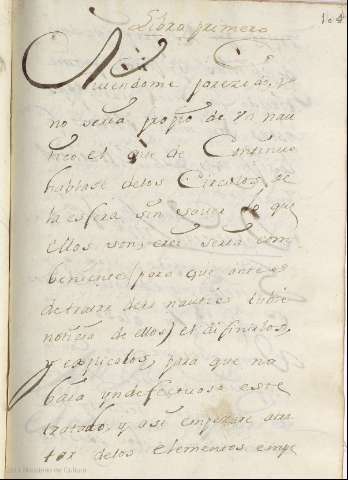 Libro primero
Aviendome parezido, q
no seria propio de un nau
tico el que de Continuo
hablase delos Circulos, de
la esfera sin saver lo que
ellos son, crei seria com
beniente (para que antes
detratar dela nautica tubie
noticia de ellos) el difinirlos,
y explicalos, para que no
baia yndefectuoso este
tratado, y asi empezare atra
tar delos elementos empe